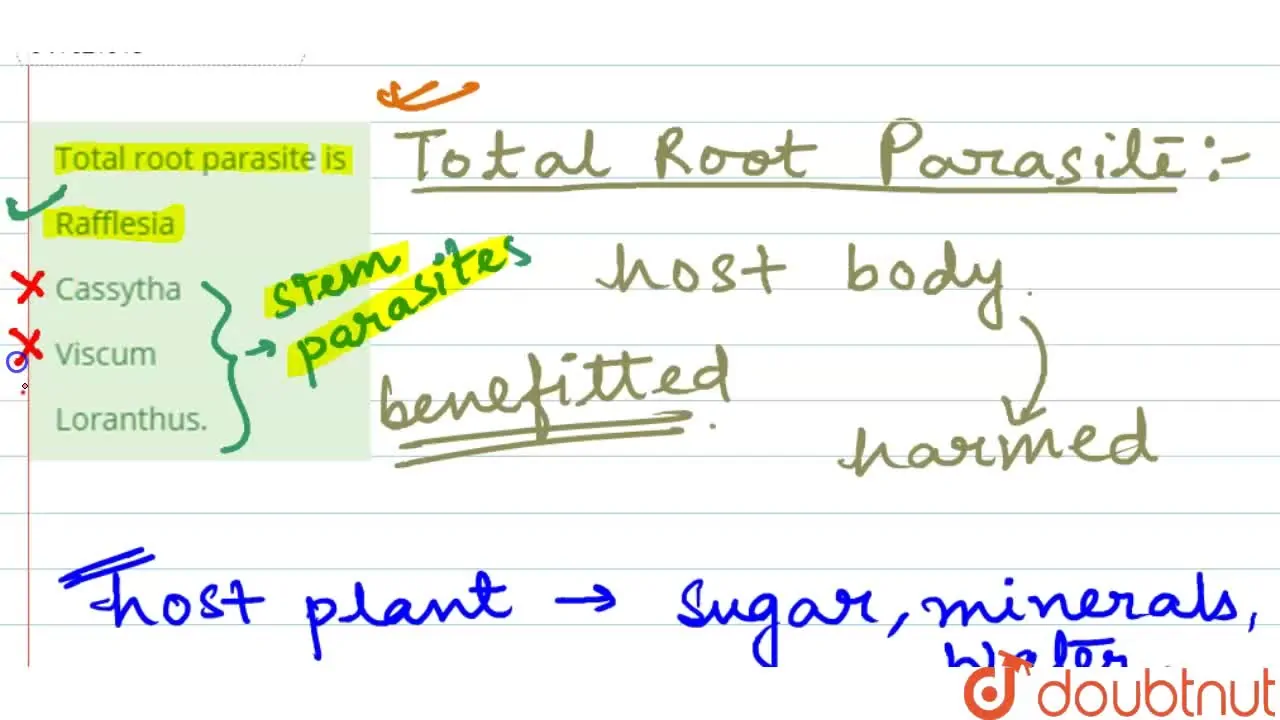 Total root parasite is
Rafflesia
Cassytha
Viscum
Loranthus.
stem
parasites
Total Root Parasite:-
host body.
benefitted.
harmed
host plant → sugar, minerals,
water
doubtnut